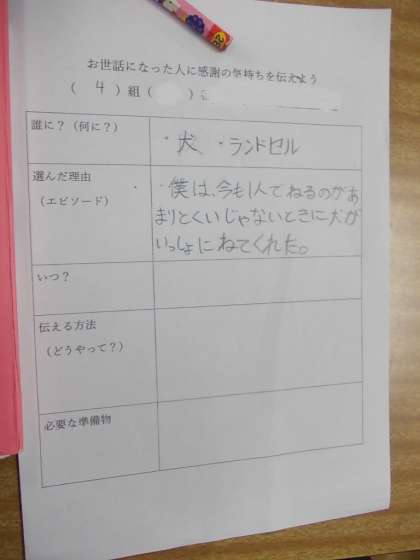 お世話になった人に感謝の気持ちを伝えよう
( 4 ) 組 (      )
誰に?(何に?)
・犬 ・ランドセル
選んだ理由
(エピソード)
・僕は、今も1人でねるのがあ
まりとくいじゃないときに犬が
いっしょにねてくれた。
いつ?
伝える方法
(どうやって?)
必要な準備物